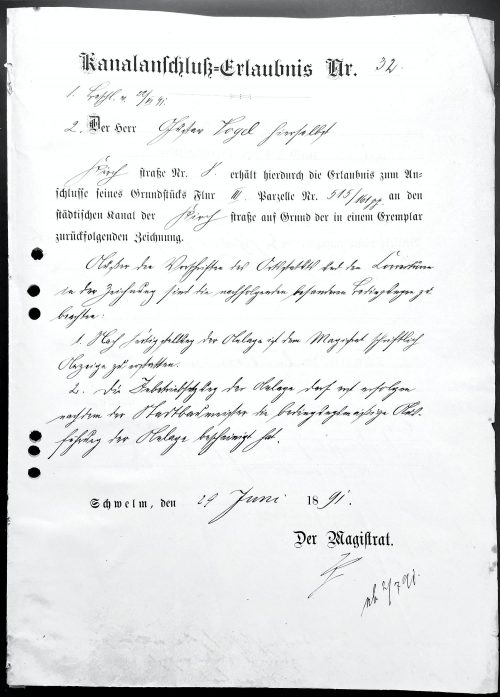 Kanalanschluß-Erlaubnis Nr. 32.
1.
2. Der Herr Gustav Vogel hierselbst
Kirch straße Nr. 8. erhält hierdurch die Erlaubnis zum An-
schlusse seines Grundstücks Flur III. Parzelle Nr. 515/ an den
städtischen Kanal der Kirch straße auf Grund der in einem Exemplar
zurückfolgenden Zeichnung.
Außer den Vorschriften des Ortsstatuts und den Correcturen
in der Zeichnung sind die nachfolgenden besonderen Bedingungen zu
beachten:
1. Nach Fertigstellung der Anlage ist dem Magistrat schriftlich
Anzeige zu erstatten.
2. Die Inbetriebsetzung der Anlage darf erst erfolgen
nachdem der Stadtbaumeister die bedingungsmäßige Aus-
führung der Anlage bescheinigt hat.
Schwelm, den 29 Juni 1891.
Der Magistrat.
ab 2/7 91.